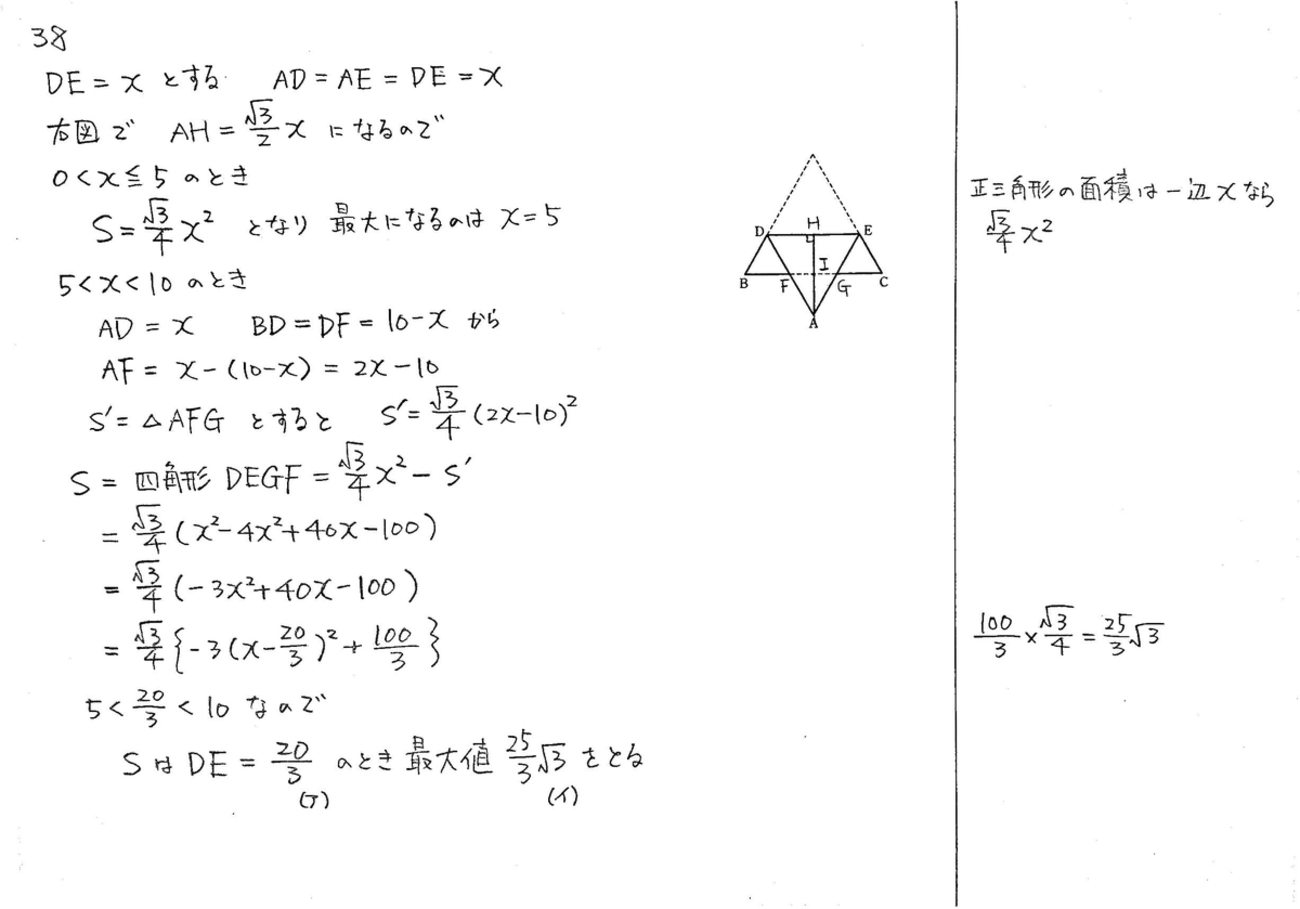 38
DE = x とする AD = AE = DE = x
右図で AH = √3/2 x になるので
0 < x ≦ 5 のとき
S = √3/4 x² となり 最大になるのは x = 5
5 < x < 10 のとき
AD = x BD = DF = 10 - x から
AF = x - (10 - x) = 2x - 10
S′ = △AFG とすると S′ = √3/4 (2x - 10)²
S = 四角形 DEGF = √3/4 x² - S′
= √3/4 (x² - 4x² + 40x - 100)
= √3/4 (-3x² + 40x - 100)
= √3/4 {-3(x - 20/3)² + 100/3}
5 < 20/3 < 10 なので
S は DE = 20/3 のとき 最大値 25/3 √3 をとる
(ア) (イ)
D H E
B F I G C
A
正三角形の面積は一辺 x なら
√3/4 x²
100/3 × √3/4 = 25/3 √3